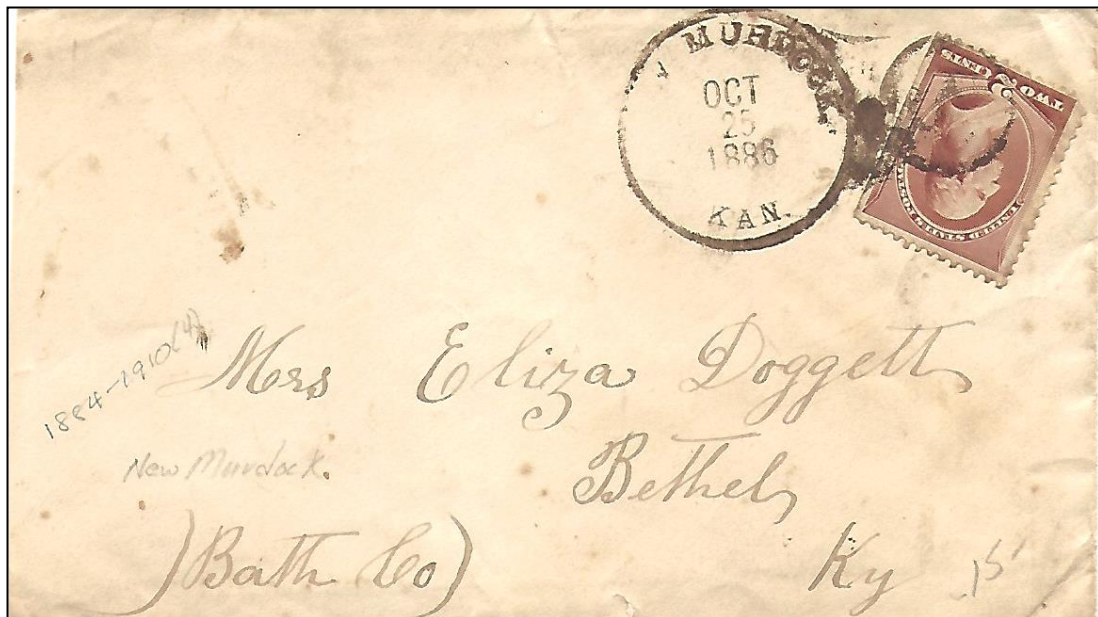 MURDOCK
OCT
25
1886
KAN.
TWO 2 CENTS
1884-1910(4)
Mrs Eliza Doggett
New Murdock.
Bethel,
(Bath Co)
Ky
15